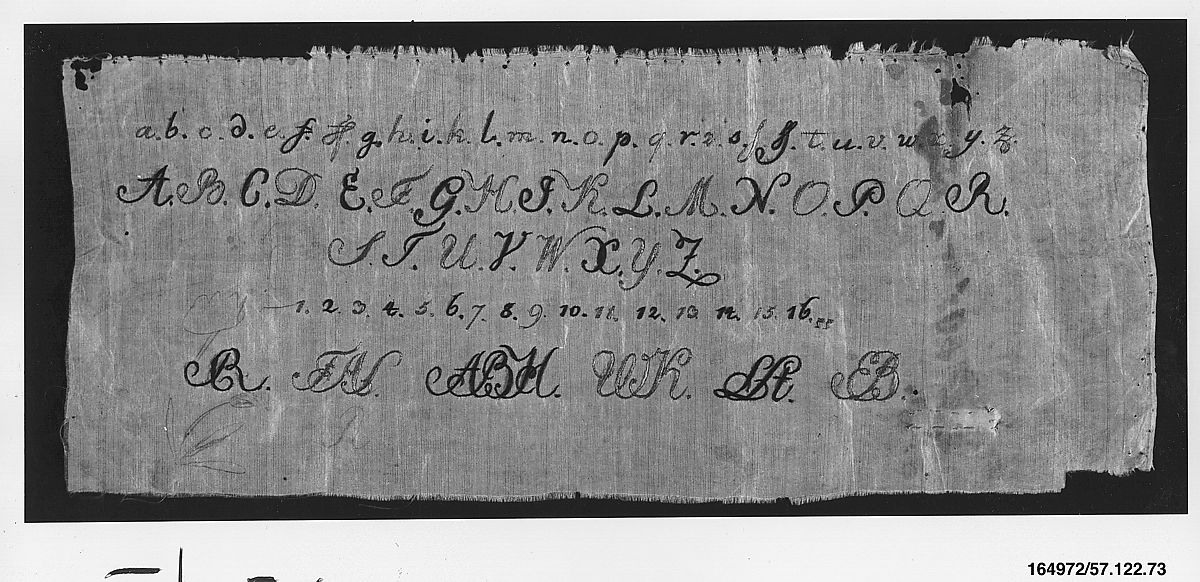 a.b.c.d.e.f.ff.g.h.i.k.l.m.n.o.p.q.r.z.s.ſ.ſſ.t.u.v.w.x.y.z.
A.B.C.D.E.F.G.H.I.K.L.M.N.O.P.Q.R.
S.T.U.V.W.X.Y.Z.
1. 2. 3. 4. 5. 6. 7. 8. 9. 10. 11. 12. 13. 14. 15. 16.
AR. FM. ABH. UK. EB.
164972/57.122.73